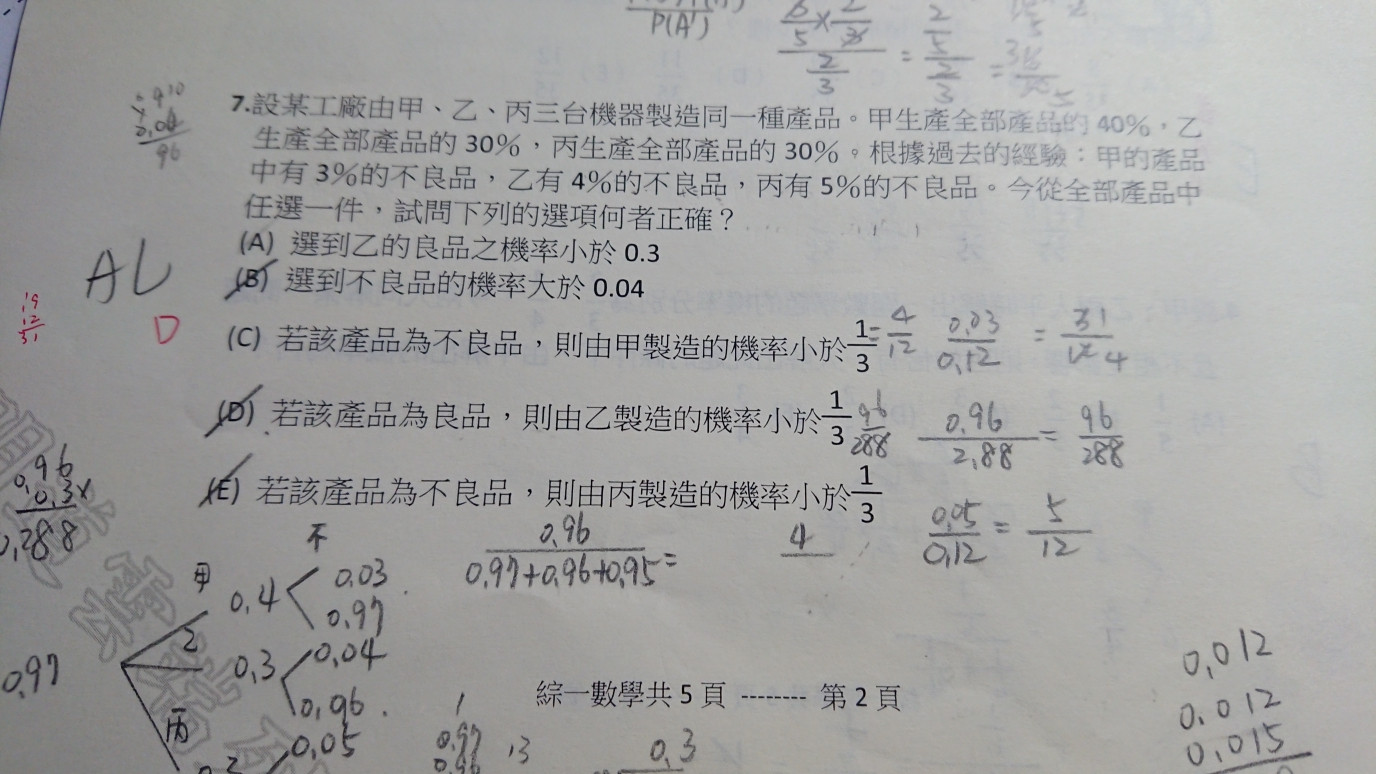 P(A')
6/5 × 2/3 / 2/3 = 2/5 / 2/3
7.設某工廠由甲、乙、丙三台機器製造同一種產品。甲生產全部產品的 40%，乙
生產全部產品的 30%，丙生產全部產品的 30%。根據過去的經驗：甲的產品
中有 3%的不良品，乙有 4%的不良品，丙有 5%的不良品。今從全部產品中
任選一件，試問下列的選項何者正確？
(A) 選到乙的良品之機率小於 0.3
(B) 選到不良品的機率大於 0.04
AC
D
19
12
31
(C) 若該產品為不良品，則由甲製造的機率小於 1/3 = 4/12 0.03/0.12 = 31/12 4
(D) 若該產品為良品，則由乙製造的機率小於 1/3 96/288 0.96/2.88 = 96/288
(E) 若該產品為不良品，則由丙製造的機率小於 1/3 0.05/0.12 = 5/12
0.96
0.3×
0.288
不
0.96/0.97+0.96+0.95 =
4
甲 0.4 0.03
0.97
乙 0.3 0.04
0.96
丙 0.05
0.97
綜一數學共 5 頁 -------- 第 2 頁
0.97 13
0.96
0.3
0.012
0.012
0.015